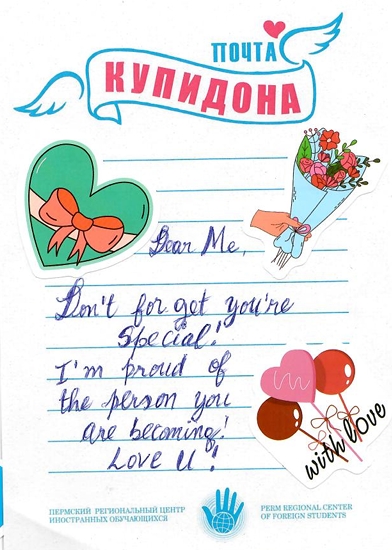 ПОЧТА
КУПИДОНА
Dear Me,
Don't forget you're
special!
I'm proud of
the person you
are becoming!
Love U!
with love
ПЕРМСКИЙ РЕГИОНАЛЬНЫЙ ЦЕНТР
ИНОСТРАННЫХ ОБУЧАЮЩИХСЯ
PERM REGIONAL CENTER
OF FOREIGN STUDENTS